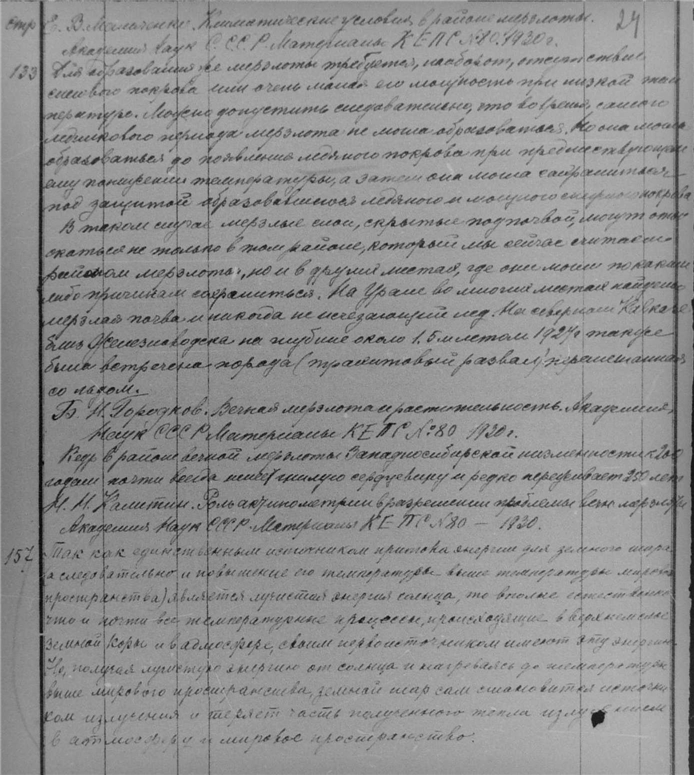 стр Е. В. Мальченко. Климатические условия в районе мерзлоты. 24
Академия Наук СССР Материалы КЕПС №80. 1930г.
133 Для образования же мерзлоты требуется, наоборот, отсутствие
снегового покрова или очень малая его мощность при низкой тем
пературе. Можно допустить следовательно, что во время самого
ледникового периода мерзлота не могла образоваться. Но она могла
образоваться до появления ледяного покрова при предшествующем
ему понижении температуры, а затем она могла сохраниться
под защитой образовавшегося ледяного и мощного снежного покрова
В таком случае мерзлые слои, скрытые под почвой, могут оты
скаться не только в том районе, который мы сейчас считаем
районом мерзлоты, но и в других местах, где они могли по каким
либо причинам сохраниться. На Урале во многих местах найдена
мерзлая почва и никогда не исчезающий лед. На северном Кавказе
близ Железноводска на глубине около 1.5 м летом 1927г также
была встречена порода (трахитовый развал) перемешанная
со льдом.
Б. Н. Городков. Вечная мерзлота и растительность. Академия
Наук СССР Материалы КЕПС №80 1930г.
Кедр в районе вечной мерзлоты Западносибирской низменности к 200
годам почти всегда имеет гнилую сердцевину и редко переживает 250 лет
Н. Н. Калитин. Роль актинометрии в разрешении проблемы вечн мерзлоты
Академия Наук СССР Материалы КЕПС №80 — 1930.
157 Так как единственным источником притока энергии для земного шара
(а следовательно и повышение его температуры выше температуры мирового
пространства) является лучистая энергия солнца, то вполне естественно
что и почти все температурные процессы, происходящие в верхнем слое
земной коры и в атмосфере, своим первоисточником имеют эту энергию.
Но, получая лучистую энергию от солнца и нагреваясь до температуры
выше мирового пространства, земной шар сам становится источни
ком излучения и теряет часть полученного тепла излучением
в атмосферу и мировое пространство.